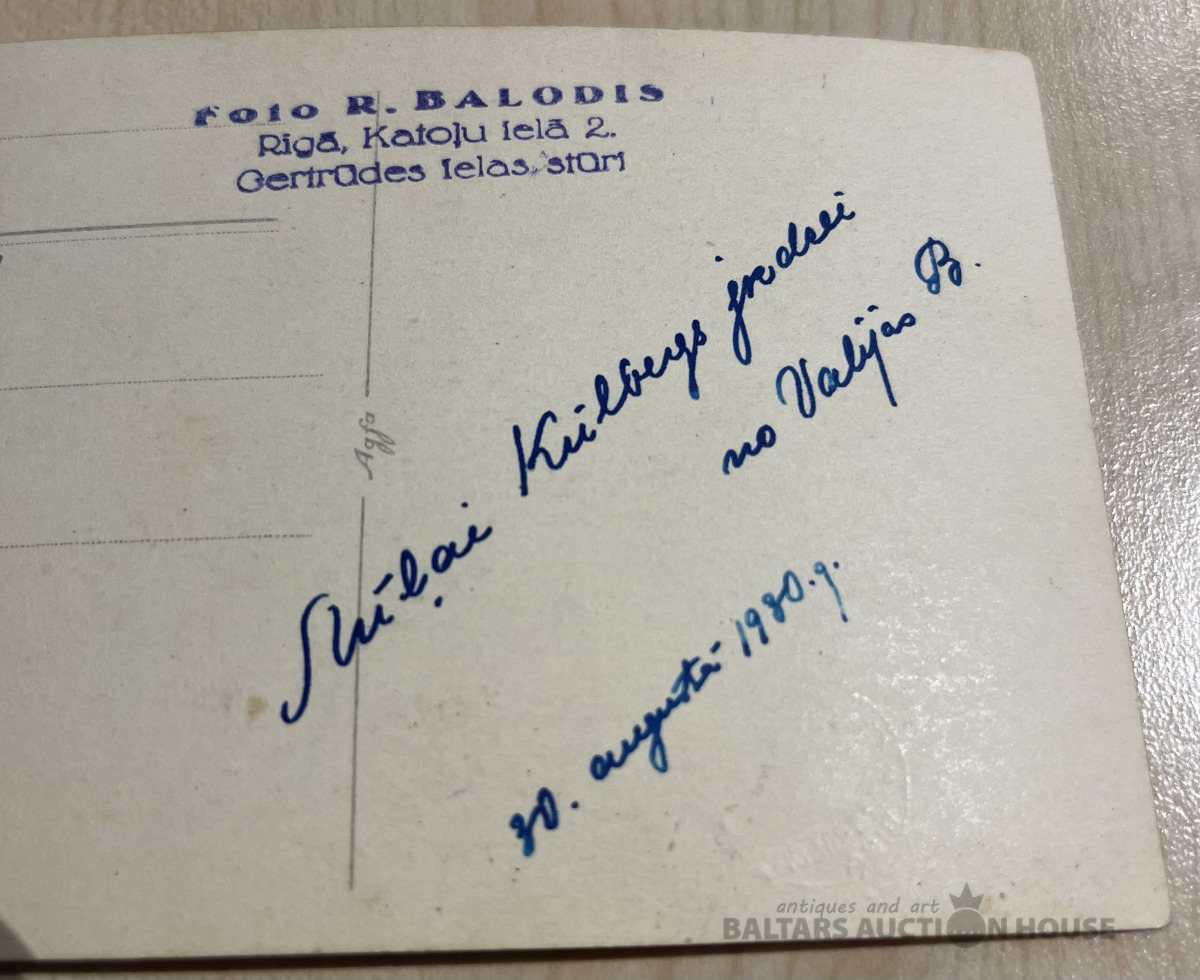 Foto R. BALODIS
Rīgā, Katoļu Ielā 2.
Ģertrūdes Ielas stūrī
Mīļai
no Valijas B.
30. augustā 1930.g.
Agfa
antiques and art
BALTARS AUCTION HOUSE